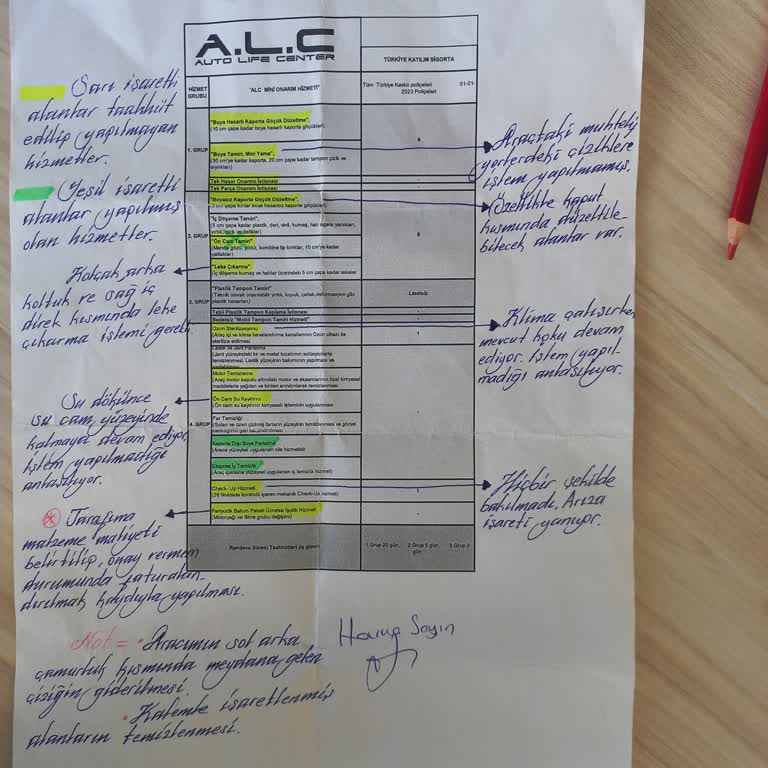 A.L.C
AUTO LIFE CENTER
TÜRKİYE KATILIM SİGORTA
HİZMET GRUBU
"ALC MİNİ ONARIM HİZMETİ"
Tüm Türkiye Kasko poliçeleri 01-01-
2023 Poliçeleri
1. GRUP
"Boya Hasarlı Kaporta Göçük Düzeltme",
(10 cm çapa kadar boya hasarlı kaporta göçükleri)
4
"Boya Tamiri, Mini Yama"
(30 cm'ye kadar kaporta, 20 cm çapa kadar tampon çizik ve
sıyrıkları)
Tek Hasar Onarımı İstisnası
-
Tek Parça Onarımı İstisnası
-
2. GRUP
"Boyasız Kaporta Göçük Düzeltme",
cm çapa kadar boya hasarsız kaporta göçükleri)
"İç Döşeme Tamiri",
(5 cm çapa kadar plastik, deri, vinil, kumaş, halı sigara yanıkları,
yırtık, çizik ve delikler)
"Ön Cam Tamiri"
kombine tip kırıklar, 10 cm'ye kadar
çatlaklar)
"Leke Çıkarma"
(İç döşeme kumaş ve halılar üzerindeki 5 cm çapa kadar lekeler
3. GRUP
"Plastik Tampon Tamiri"
(Teknik olarak onarılabilir yırtık, kopuk, çatlak, deformasyon gibi
plastik hasarları)
Limitsiz
Tabii Plastik Tampon Kaplama İstisnası
-
Bedelsiz "Mobil Tampon Tamiri Hizmeti"
-
4. GRUP
Ozon Sterilizasyonu
(Araç içi ve klima havalandırma kanallarının Ozon cihazı ile
sterilize edilmesi
1
Lastik ve Jant Parlatma
(Jant yüzeyindeki kir ve metal tozlarının solüsyonlarla
temizlenmesi, Lastik yüzeyinin bakımının yapılması ve
Motor Temizleme
(Araç motor kaputu altındaki motor ve aksamlarının özel kimyasal
maddelerle yağdan ve kirden arındırılarak temizlenmesi
Ön Cam Su Kaydırıcı
(Ön cam su kaydırıcı kimyasalı işleminin uygulanması
Far Temizliği
(Solan ve üzeri çizilmiş farların yüzeyinin temizlenmesi ve görsel
Kaporta Dışı Boya Parlatma
(Araca yüzeysel uygulanan cila hizmetidir
Ekspres İç Temizlik
(Araç içerisine yüzeysel uygulanan iç temizlik hizmeti)
Check-Up Hizmeti
(26 Noktada kontrolü içeren mekanik Check-Up hizmeti)
1
Periyodik Bakım Paketi Ücretsiz İşçilik Hizmeti
(Motoryağı ve filtre grubu değişimi)
-
Randevu Süresi Taahhütleri (iş günü)
1.Grup 20 gün, 2.Grup 5 gün, 3.Grup 2
gün
Sarı işaretli
alanlar taahhüt
edilip yapılmayan
hizmetler.
Yeşil işaretli
alanlar yapılmış
olan hizmetler.
Kolçak, arka
koltuk ve sağ iç
direk kısmında leke
çıkarma işlemi gerekli
Su dökünce
su cam yüzeyinde
kalmaya devam ediyor
İşlem yapılmadığı
anlaşılıyor.
Tarafıma
malzeme maliyeti
belirtilip, onay vermem
durumunda faturalan-
dırılmak kaydıyla yapılması.
Araçtaki muhtelif
yerlerdeki çiziklere
işlem yapılmamış.
Özellikle kaput
kısmında düzeltile-
bilecek alanlar var.
Klima çalışırken
mevcut koku devam
ediyor. İşlem yapıl-
madığı anlaşılıyor.
Hiçbir şekilde
bakılmadı, Arıza
işareti yanıyor.
Not = • Aracımın sol arka
çamurluk kısmında meydana gelen
çiziğin giderilmesi.
• Kalemle işaretlenmiş
alanların temizlenmesi.